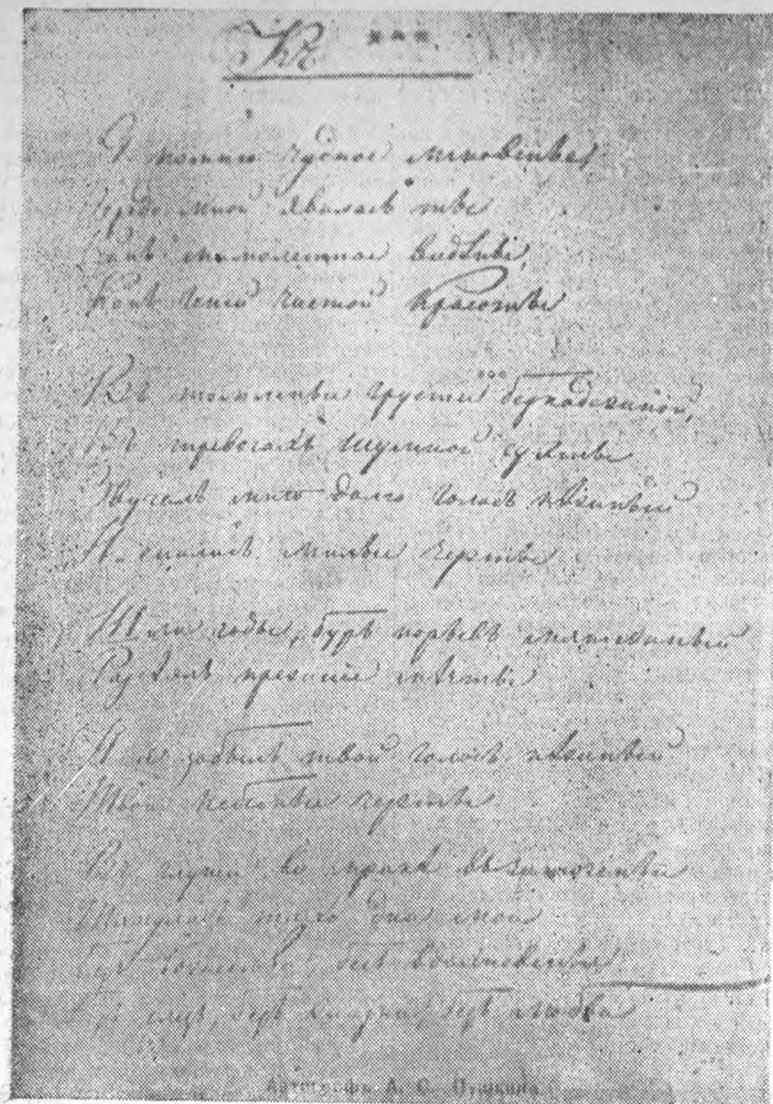 Къ ***
Я помню чудное мгновенье,
Передо мной явилась ты
Какъ мимолетное видѣнье,
Какъ геній чистой красоты
Въ томленьи грусти безнадежной,
Въ тревогахъ шумной суеты
Звучалъ мнѣ долго голосъ нѣжный
И снились милыя черты
Шли годы, бурь порывъ мятежный
Разсѣялъ прежнія мечты
И я забылъ твой голосъ нѣжный
Твои небесныя черты
Въ глуши во мракѣ заточенья
Тянулись тихо дни мои
Безъ божества, безъ вдохновенья
Безъ слезъ, безъ жизни, безъ любви
Автографъ А. С. Пушкина